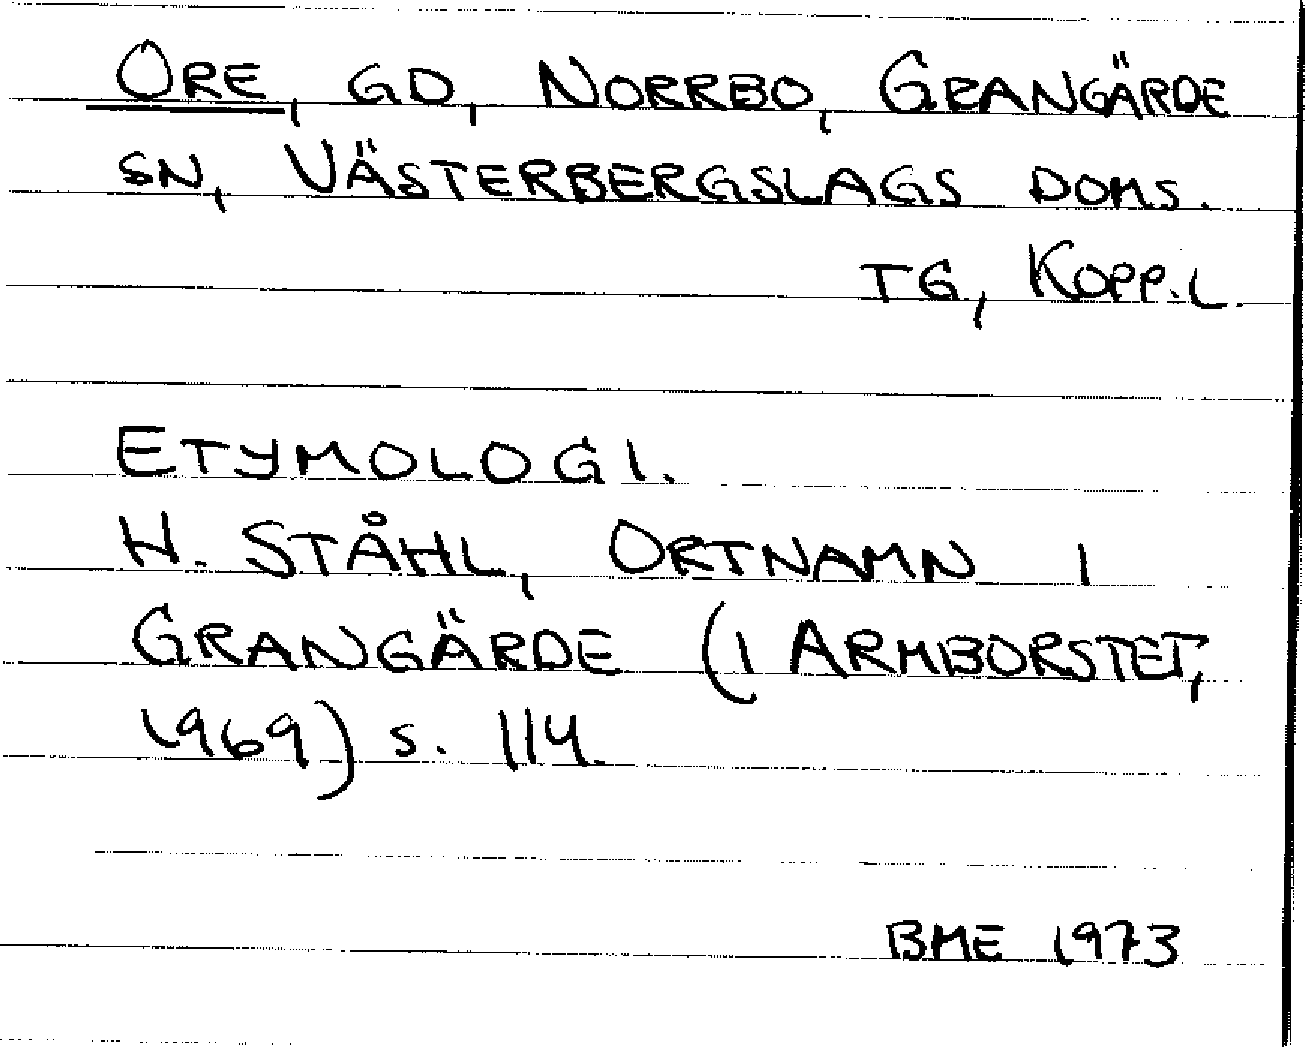 ORE, GD, NORRBO, GRANGÄRDE
SN, VÄSTERBERGSLAGS DOMS.
TG, KOPP.L.
ETYMOLOGI.
H. STÅHL, ORTNAMN I
GRANGÄRDE (I ARMBORSTET,
1969) S. 114.
BME 1973